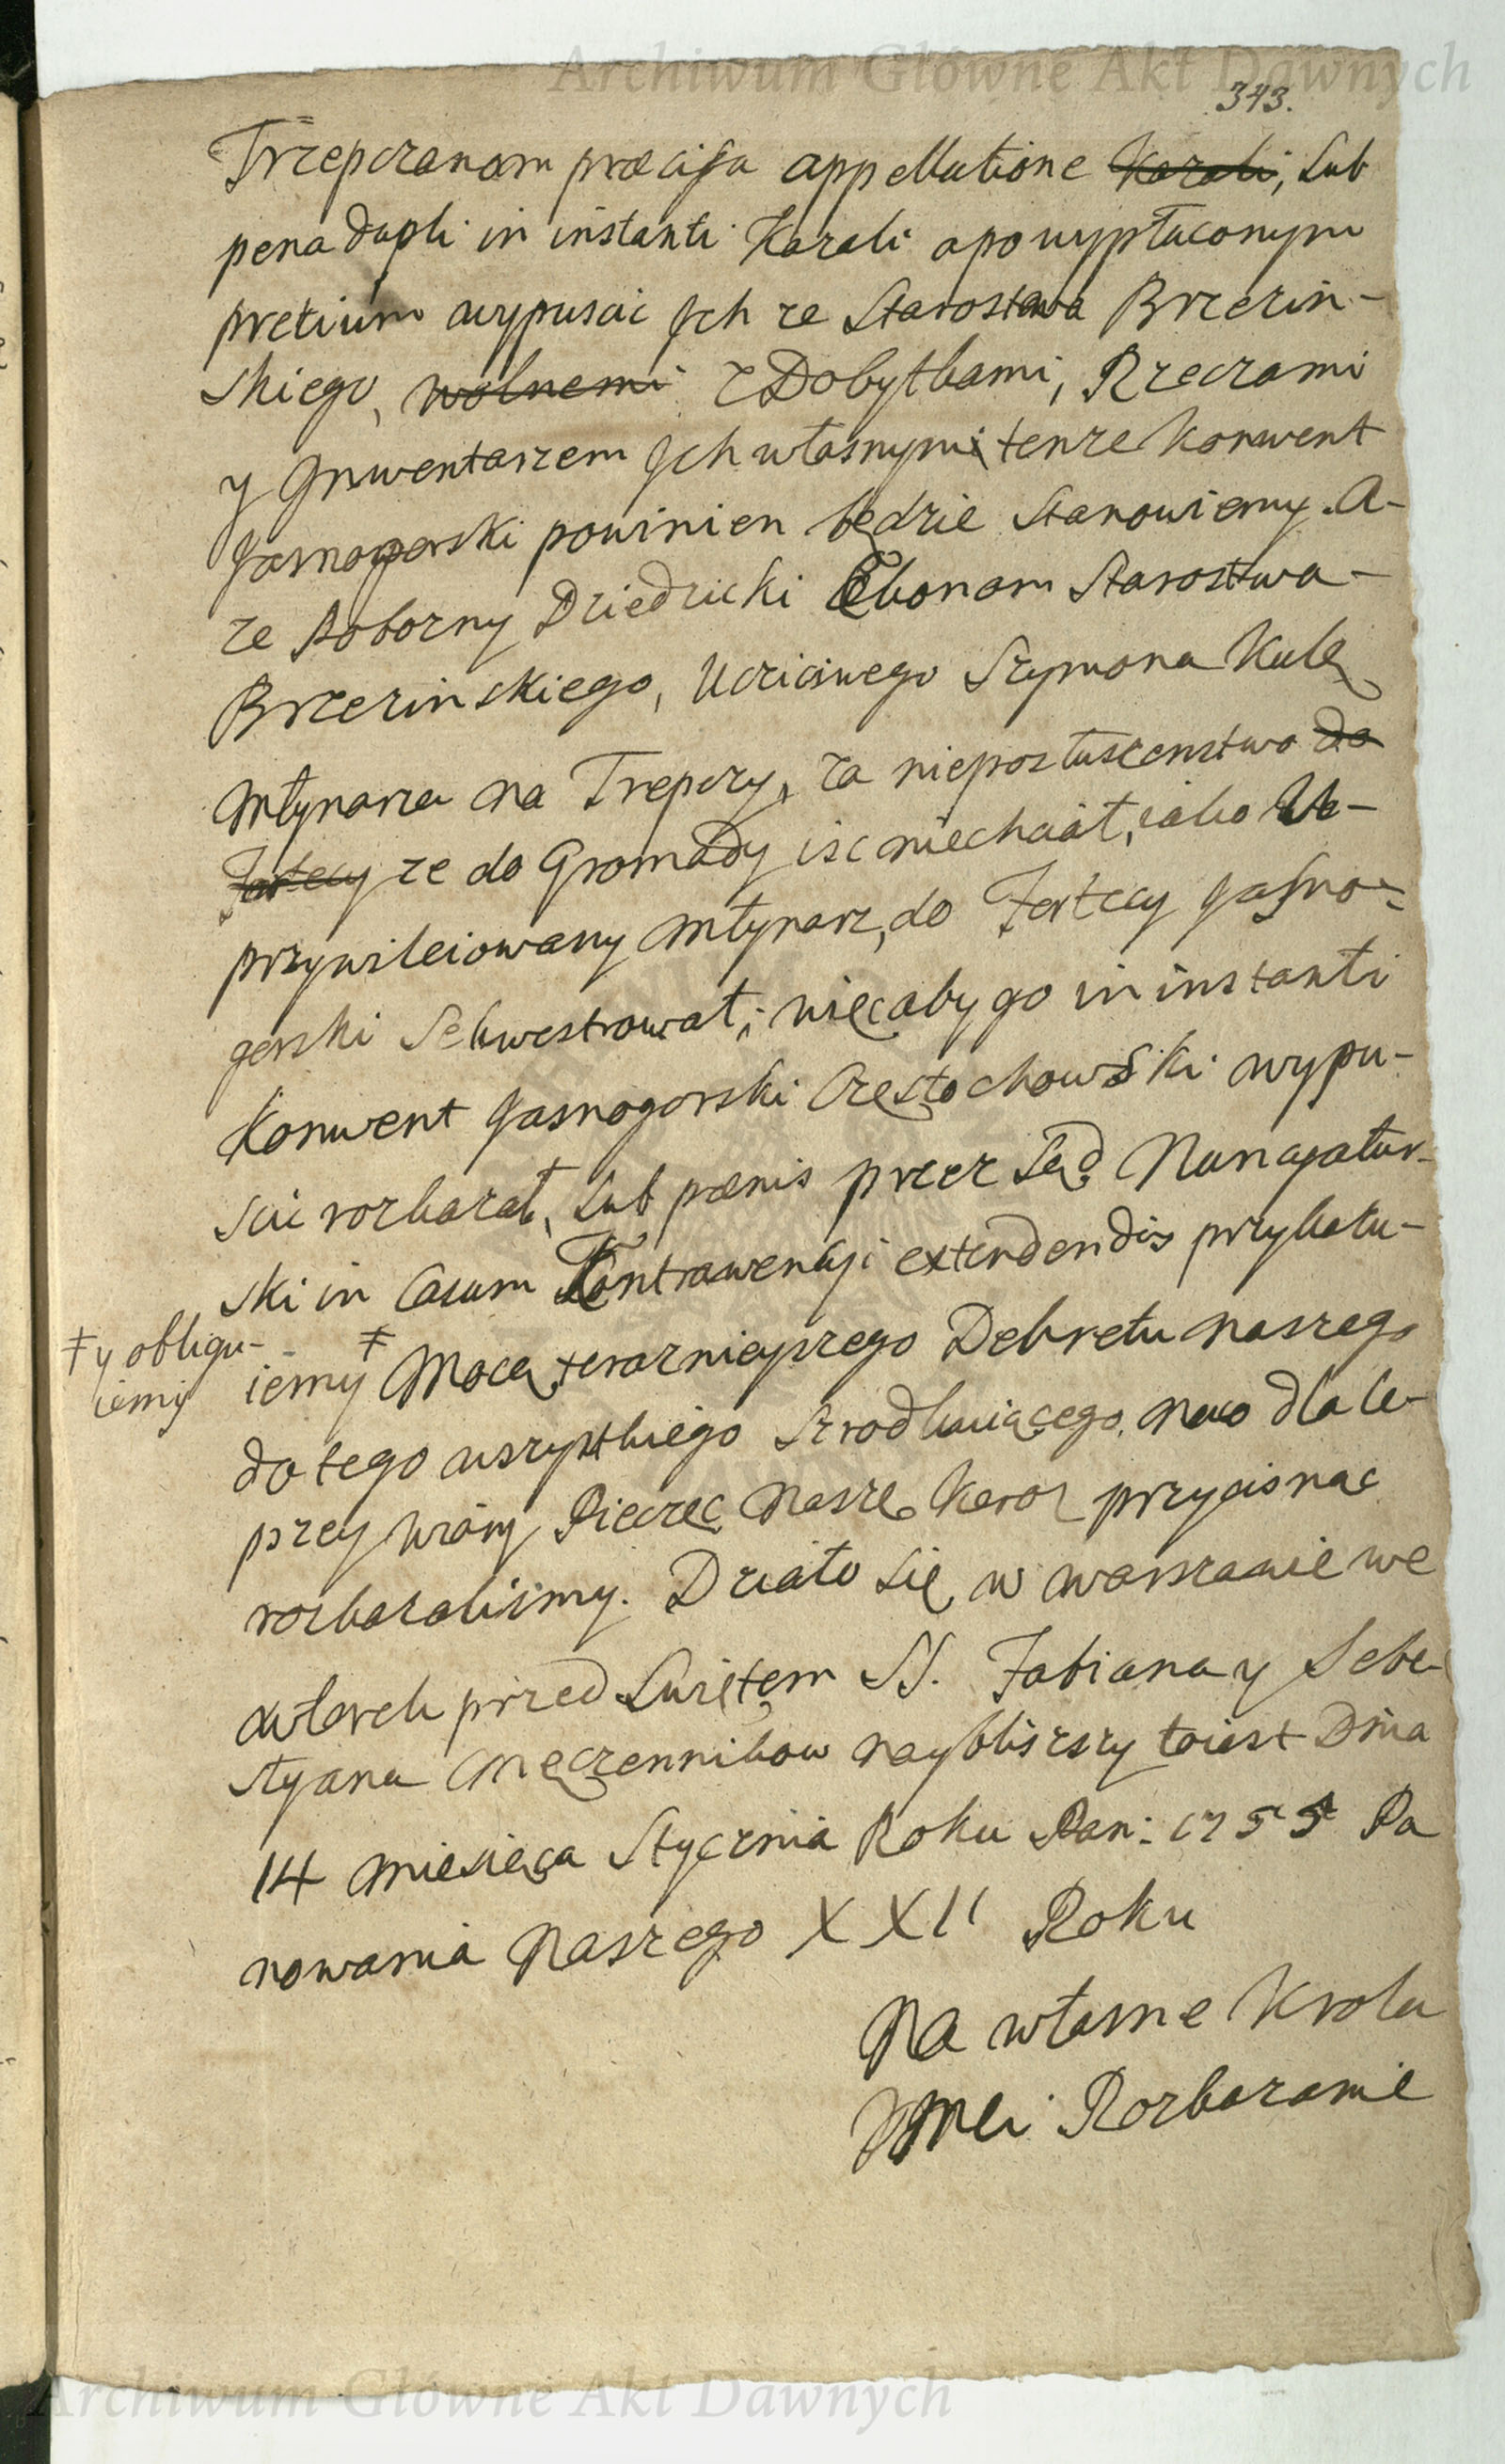 Archiwum Główne Akt Dawnych
343.
Trzepczanom præcisa appellatione Kazali, sub
pena dupli in instanti Kazali apo wypłaconym
pretium wypuscic Jch ze Starostwa Brzezin-
skiego, wolnemi z Dobytkami, Rzeczami
y Jnwentarzem Jch własnymi tenze Konwent
Jasnogorski powinien będzie Stanowiemy. A-
ze Poborny Dziedzicki Ekonom Starostwa-
Brzezinskiego, Uczciwego Szymona Kulę
Młynarza na Trepczy, za nieposłuszenstwo do
Fortecy ze do Gromady isc niechciał, iako U-
przywileiowany Młynarz, do Fortecy Jasno-
gorski Sekwestrował; więc aby go in instanti
Konwent Jasnogorski Częstochowski wypu-
scic rozkazał, sub pænis przez Sąd Nungatur-
ski in Casum Kontrawencyi extendendis przykazu-
‡ y obligu-
iemy
iemy ‡ Mocą teraznieyszego Dekretu naszego
do tego wszystkiego Srzodkuiącego. na co dla le-
pszey wiary Pieczęc Naszę Koron przycisnąc
rozkazalismy. Działo się w Warszawie we
wtorek przed Swiętem SS. Fabiana y Seba-
styana Męczennikow naybliszszy toiest Dnia
14 Miesięca Stycznia Roku Pan: 1755 Pa
nowania Naszego XXII Roku
Na własne Krola
JMci Rozkazanie
Archiwum Główne Akt Dawnych